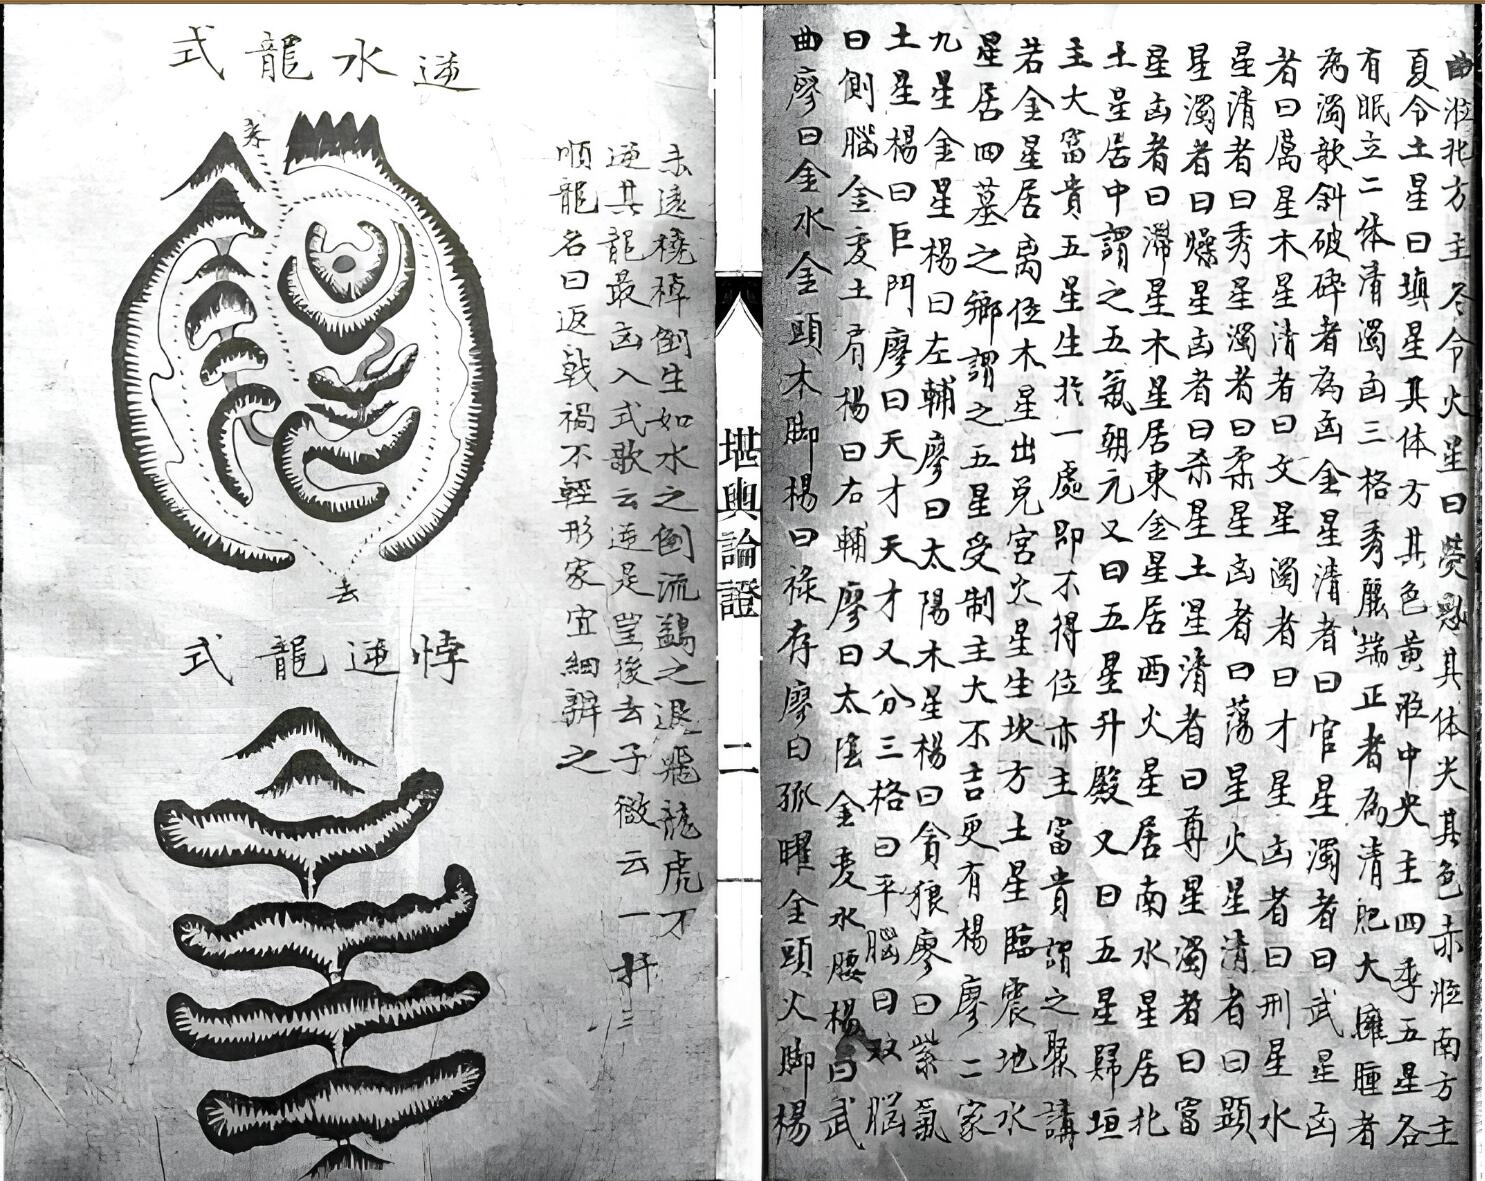 曲涖北方主冬令火星曰熒惑其体尖其色赤涖南方主
夏令土星曰填星其体方其色黄涖中央主四季五星各
有眠立二体清濁凶三格秀麗端正者為清肥大臃腫者
為濁欹斜破碎者為凶金星清者曰官星濁者曰武星凶
者曰厲星木星清者曰文星濁者曰才星凶者曰刑星水
星清者曰秀星濁者曰柔星凶者曰荡星火星清者曰顕
星濁者曰燥星凶者曰杀星土星清者曰尊星濁者曰富
星凶者曰滞星木星居東金星居西火星居南水星居北
土星居中謂之五氣朝元又曰五星升殿又曰五星歸垣
主大富貴五星生扵一處即不得位亦主富貴謂之聚講
若金星居离位木星出兑宮火星生坎方土星臨震地水
星居四墓之鄉謂之五星受制主大不吉更有楊廖二家
九星金星楊曰左輔廖曰太陽木星楊曰貪狼廖曰紫氣
土星楊曰巨門廖曰天才天才又分三格曰平腦曰双腦
曰側腦金变土肩楊曰右輔廖曰太陰金变水腰楊曰武
曲廖曰金水金頭木脚楊曰禄存廖曰孤曜金頭火脚楊
堪輿論證
二
遠橈棹倒生如水之倒流鷁之退飛龍虎不
逆其龍最凶入式歌云逆是後去子微云一扦三
順龍名曰返戟禍不輕形家宜細辨之
逆水龍式
来
去
悖逆龍式